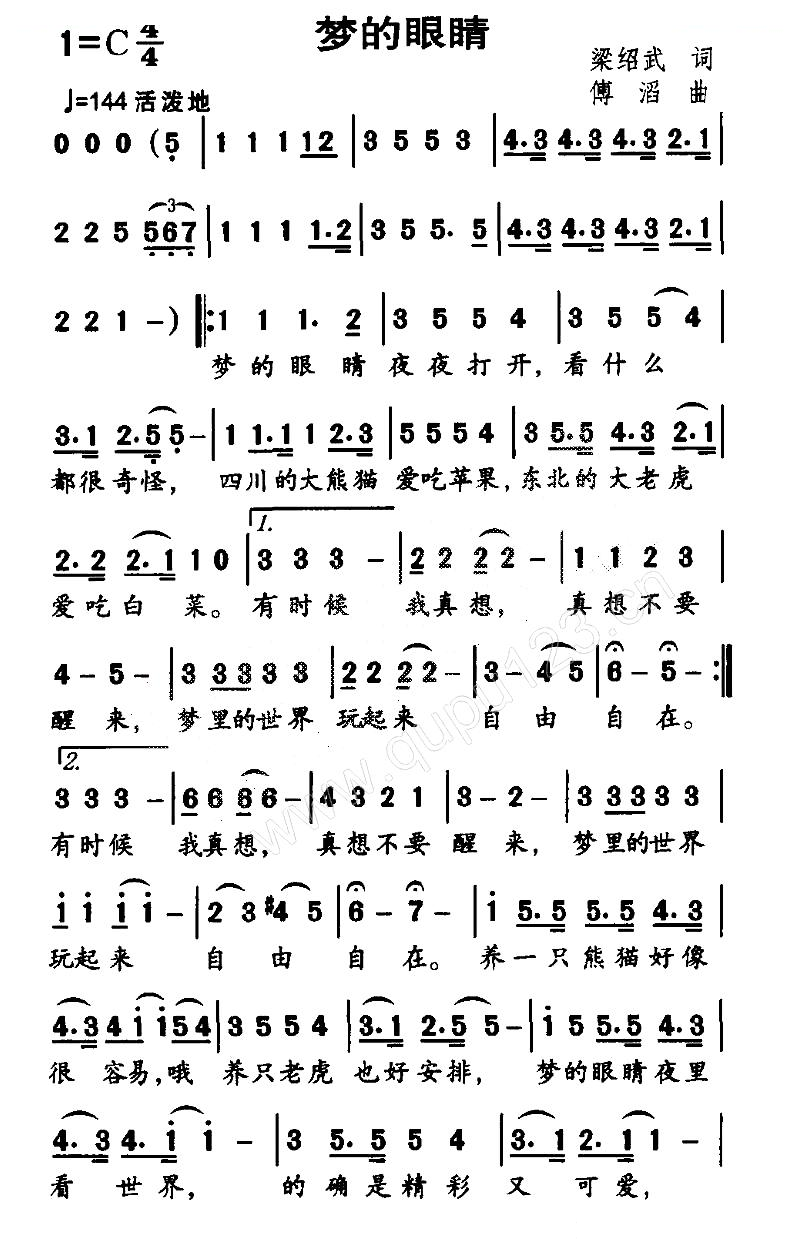 梦的眼睛
1=C 4/4
梁绍武 词
♩=144 活泼地
傅 滔 曲
0 0 0 (5 | 1 1 1 12 | 3 5 5 3 | 4.3 4.3 4.3 2.1 |
2 2 5 567 | 1 1 1 1.2 | 3 5 5. 5 | 4.3 4.3 4.3 2.1 |
2 2 1 –) ‖: 1 1 1. 2 | 3 5 5 4 | 3 5 5 4 |
梦的眼睛夜夜打开，看什么
3.1 2.5 5 – | 1 1.1 1 2.3 | 5 5 5 4 | 3 5.5 4.3 2.1 |
都很奇怪， 四川的大熊猫 爱吃苹果，东北的大老虎
1.
2.2 2.1 1 0 | 3 3 3 – | 2 2 2 2 – | 1 1 2 3 |
爱吃白菜。有时候 我真想， 真想不要
4 – 5 – | 3 3 3 3 3 3 | 2 2 2 2 – | 3 – 4 5 | 6 – 5 – :‖
醒来， 梦里的世界 玩起来 自由 自在。
2.
3 3 3 – | 6 6 6 6 – | 4 3 2 1 | 3 – 2 – | 3 3 3 3 3 3 |
有时候 我真想， 真想不要醒来，梦里的世界
1 1 1 1 – | 2 3 #4 5 | 6 – 7 – | 1 5.5 5.5 4.3 |
玩起来 自由 自在。 养一只熊猫好像
4.3 4 1 1 5 4 | 3 5 5 4 | 3.1 2.5 5 – | 1 5 5.5 4.3 |
很 容易，哦 养只老虎 也好安排， 梦的眼睛夜里
4.3 4.1 1 – | 3 5.5 5 4 | 3.1 2.1 1 – |
看 世界， 的确是精彩 又可爱，
www.qupu123.cn